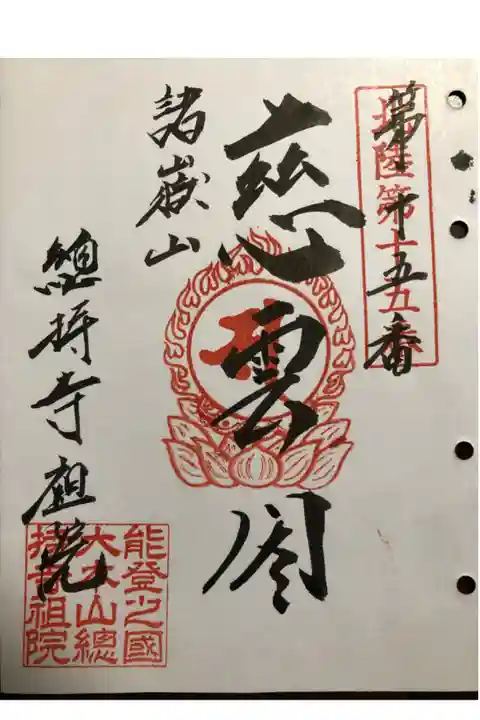 第十五番
北陸第十五番
慈雲閣
諸嶽山
總持寺祖院
能登之國
大本山總
持寺祖院